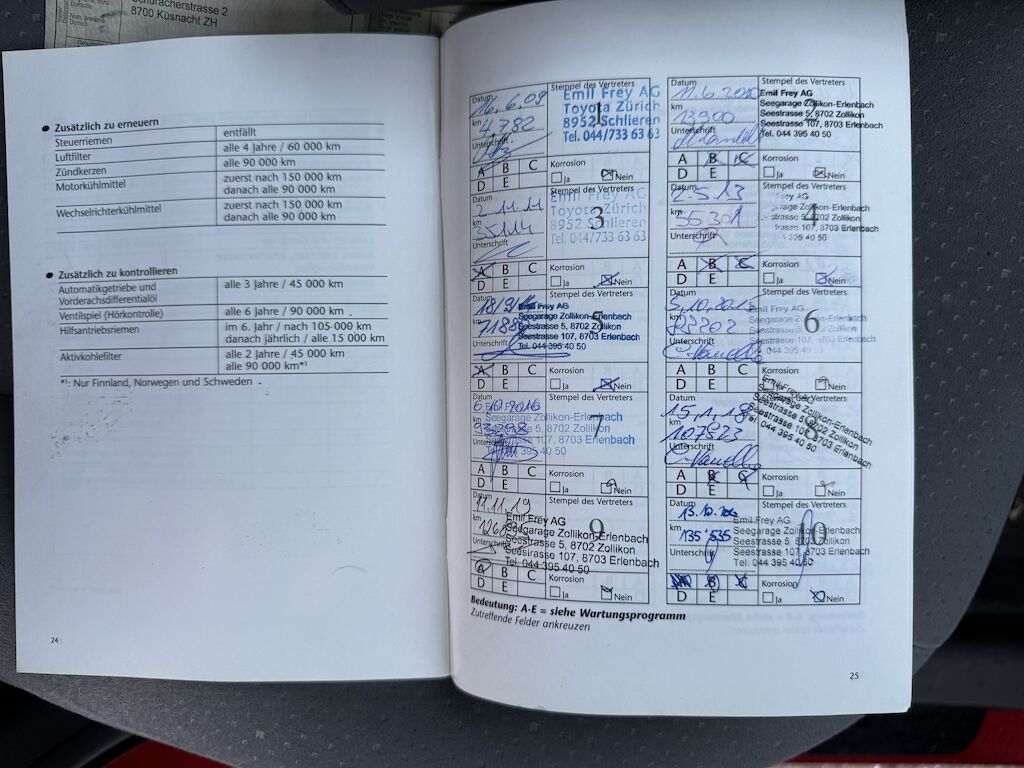 Schüracherstrasse 2
8700 Küsnacht ZH
Zusätzlich zu erneuern
Steuerriemen entfällt
Luftfilter alle 4 Jahre / 60 000 km
Zündkerzen alle 90 000 km
Motorkühlmittel zuerst nach 150 000 km
danach alle 90 000 km
Wechselrichterkühlmittel zuerst nach 150 000 km
danach alle 90 000 km
Zusätzlich zu kontrollieren
Automatikgetriebe und
Vorderachsdifferentialöl alle 3 Jahre / 45 000 km
Ventilspiel (Hörkontrolle) alle 6 Jahre / 90 000 km
Hilfsantriebsriemen im 6. Jahr / nach 105 000 km
danach jährlich / alle 15 000 km
Aktivkohlefilter alle 2 Jahre / 45 000 km
alle 90 000 km*¹
*¹: Nur Finnland, Norwegen und Schweden
24
Datum Stempel des Vertreters
16.6.09 Emil Frey AG
km 4.782 1 Toyota Zürich
Unterschrift 8952 Schlieren
Tel. 044/733 63 63
A B C Korrosion
D E Ja Nein
Datum Stempel des Vertreters
11.6.2010 Emil Frey AG
km 13900 Seegarage Zollikon-Erlenbach
Seestrasse 5, 8702 Zollikon
Unterschrift Seestrasse 107, 8703 Erlenbach
Tel. 044 395 40 50
A B C Korrosion
D E Ja Nein
Datum Stempel des Vertreters
2.11.11 Emil Frey AG
km 35114 3 Toyota Zürich
Unterschrift 8952 Schlieren
Tel. 044/733 63 63
A B C Korrosion
D E Ja Nein
Datum Stempel des Vertreters
2.5.13 Frey AG
km 55301 4 Zollikon-Erlenbach
5, 8702 Zollikon
Unterschrift 107, 8703 Erlenbach
395 40 50
A B C Korrosion
D E Ja Nein
Datum Stempel des Vertreters
Emil Frey AG
km 71886 5 Seegarage Zollikon-Erlenbach
Seestrasse 5, 8702 Zollikon
Unterschrift Seestrasse 107, 8703 Erlenbach
Tel. 044 395 40 50
A B C Korrosion
D E Ja Nein
Datum Stempel des Vertreters
5.10.2015 Emil Frey AG
km 6 Seegarage Zollikon-Erlenbach
Seestrasse 5, 8702 Zollikon
Unterschrift Seestrasse 107, 8703 Erlenbach
044 395 40 50
A B C Korrosion
D E Ja Nein
Datum Stempel des Vertreters
6.10.2016 Emil Frey AG
km 7 Seegarage Zollikon-Erlenbach
Seestrasse 5, 8702 Zollikon
Unterschrift Seestrasse 107, 8703 Erlenbach
Tel. 044 395 40 50
A B C Korrosion
D E Ja Nein
15.1.18 Emil Frey AG
107823 Seegarage Zollikon-Erlenbach
Seestrasse 5, 8702 Zollikon
Unterschrift Seestrasse 107, 8703 Erlenbach
Tel. 044 395 40 50
A B C Korrosion
D E Ja Nein
Datum Stempel des Vertreters
11.11.19 Emil Frey AG
km 9 Seegarage Zollikon-Erlenbach
Unterschrift Seestrasse 5, 8702 Zollikon
Seestrasse 107, 8703 Erlenbach
Tel. 044 395 40 50
A B C Korrosion
D E Ja Nein
Datum Stempel des Vertreters
Emil Frey AG
km 135'535 10 Seegarage Zollikon-Erlenbach
Seestrasse 5, 8702 Zollikon
Unterschrift Seestrasse 107, 8703 Erlenbach
Tel. 044 395 40 50
B C Korrosion
D E Ja Nein
Bedeutung: A-E = siehe Wartungsprogramm
Zutreffende Felder ankreuzen
25